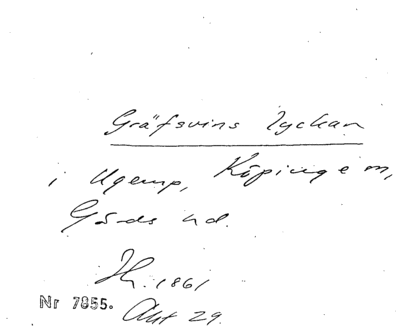 Gräfsvins lyckan
i Ugerup, Köpinge sn,
Gärds hd.
Sk. 1861
Nr 7855.
Akt 29.